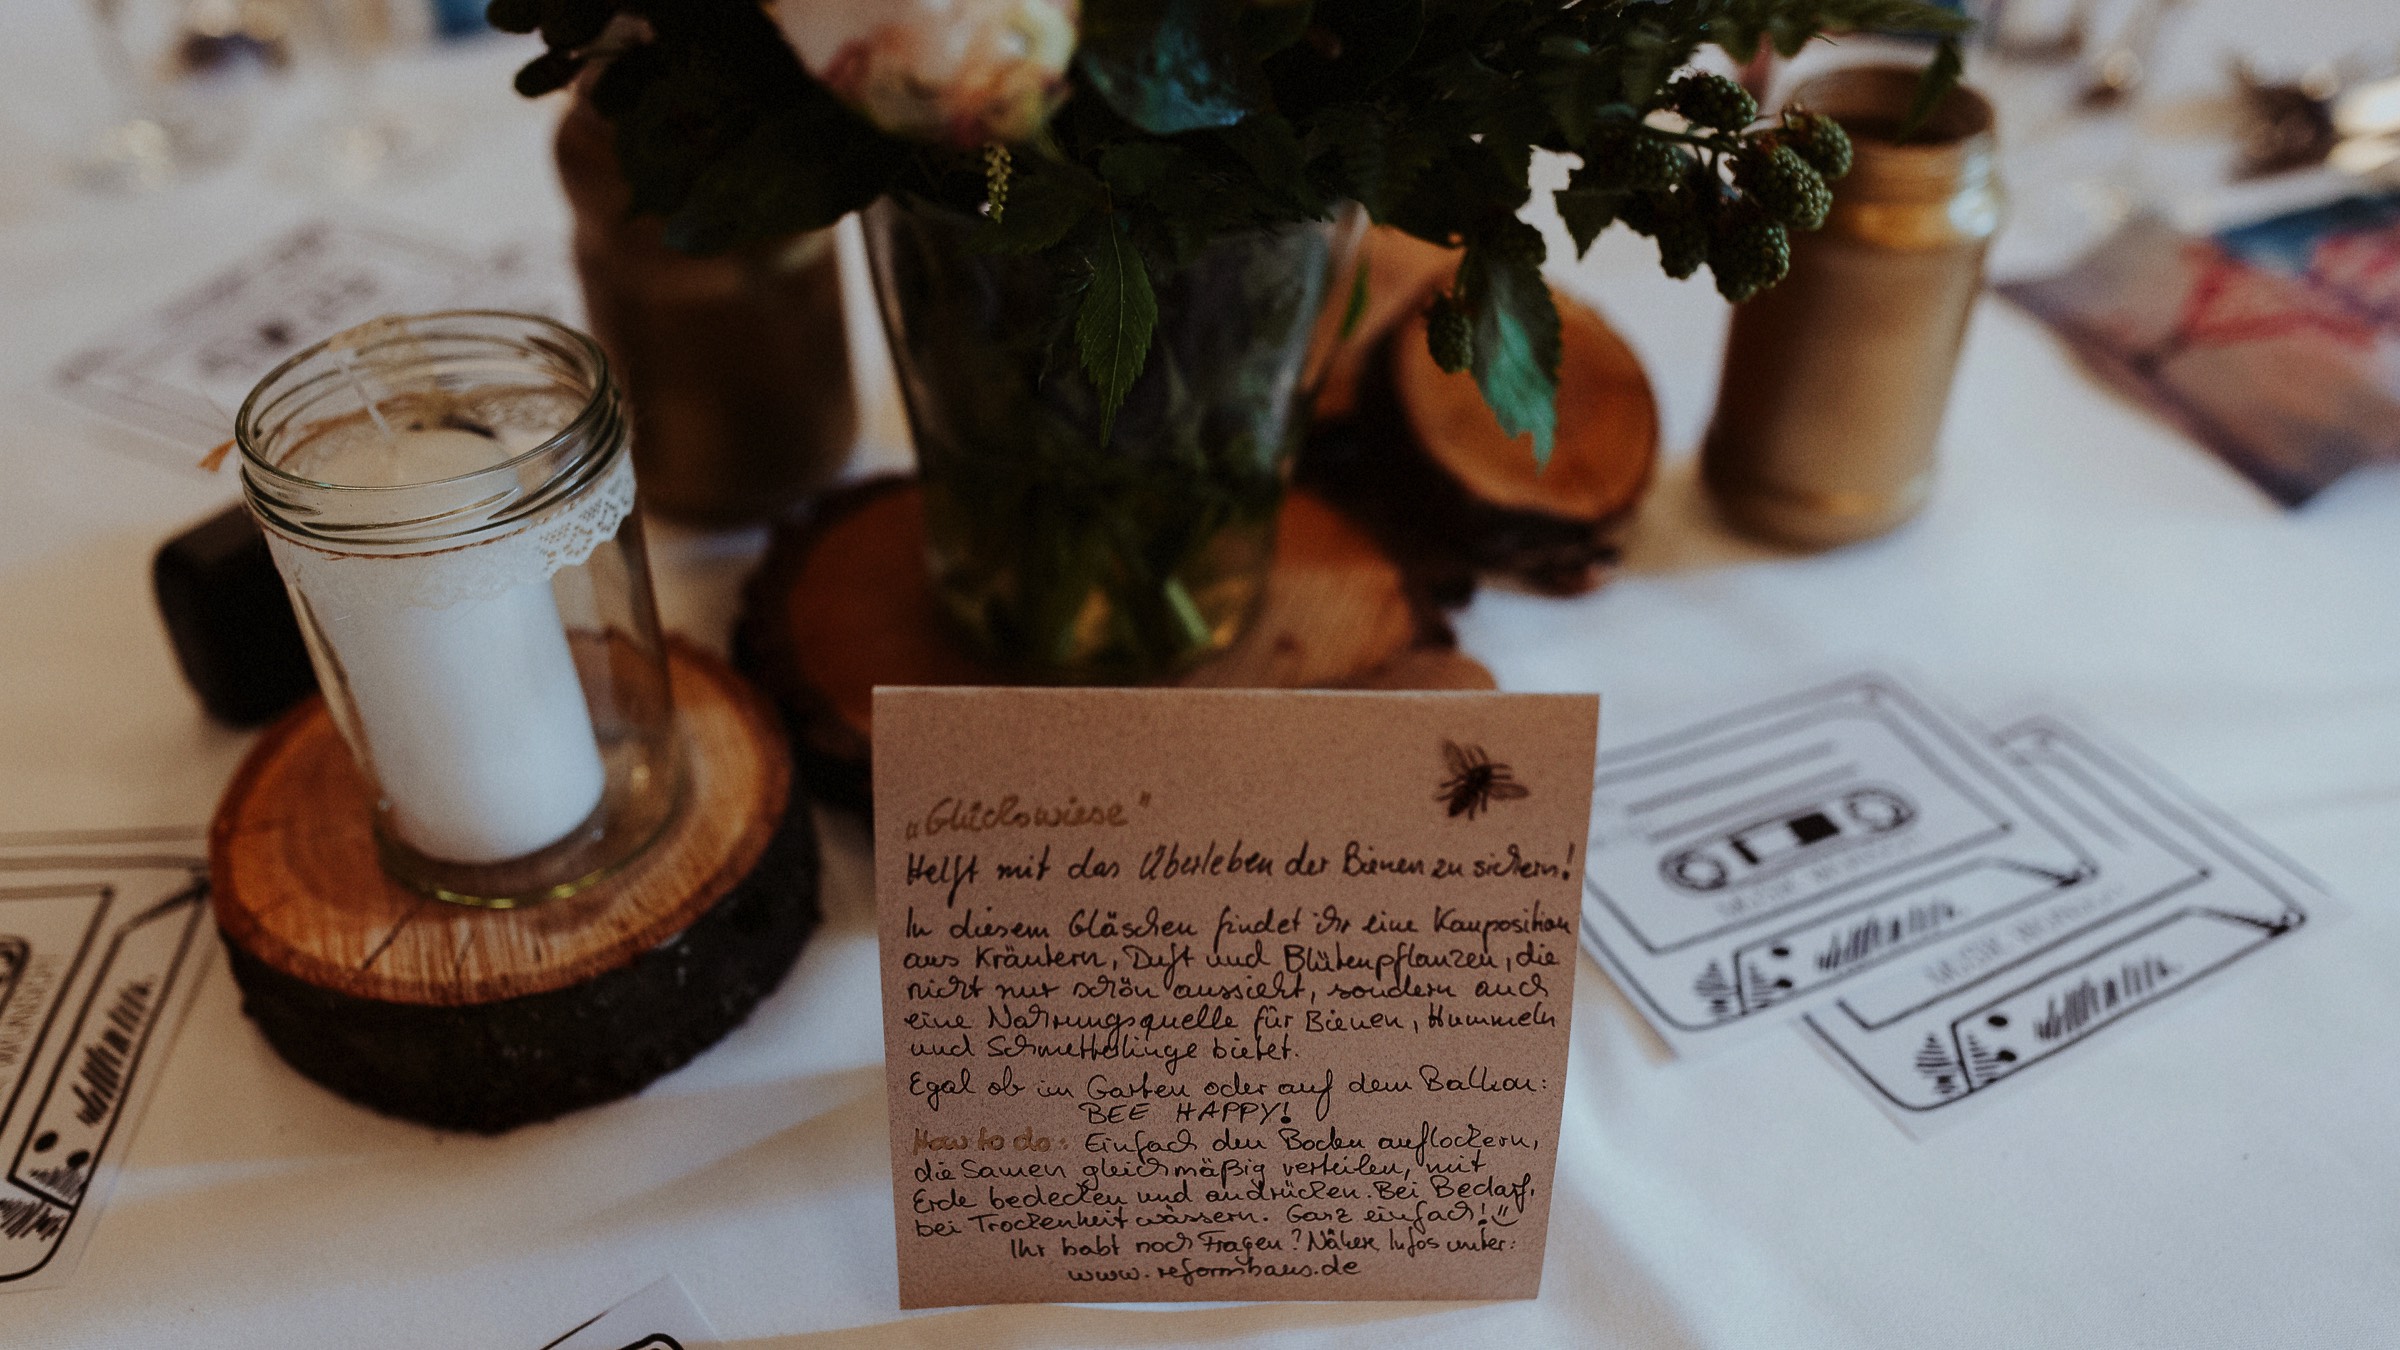 „Glückswiese"
Helft mit das Überleben der Bienen zu sichern!
In diesem Gläschen findet ihr eine Komposition
aus Kräutern, Duft und Blütenpflanzen, die
nicht nur schön aussieht, sondern auch
eine Nahrungsquelle für Bienen, Hummeln
und Schmetterlinge bietet.
Egal ob im Garten oder auf dem Balkon:
BEE HAPPY!
How to do: Einfach den Boden auflockern,
die Samen gleichmäßig verteilen, mit
Erde bedecken und andrücken. Bei Bedarf,
bei Trockenheit wässern. Ganz einfach!
Ihr habt noch Fragen? Nähere Infos unter:
www.reformhaus.de
MUSIK WUNSCH
MUSIK WUNSCH
WUNSCH